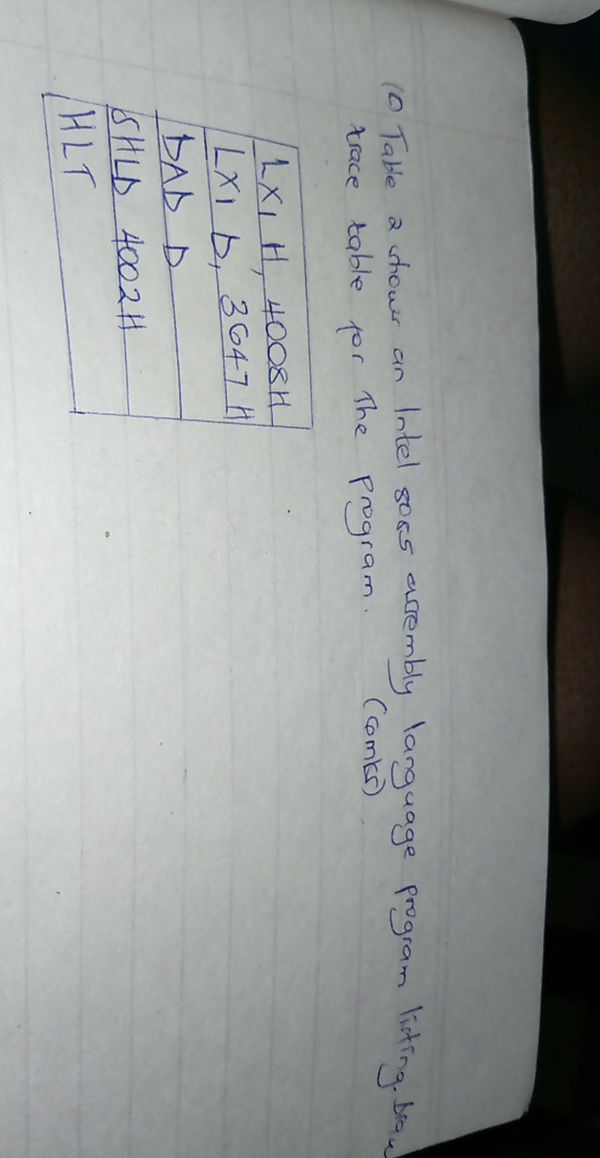 (c) Table 2 shows an Intel 8085 assembly language program listing. Draw
trace table for the program. (6mks)
LXI H, 4008H
LXI D, 3647H
DAD D
SHLD 4002H
HLT